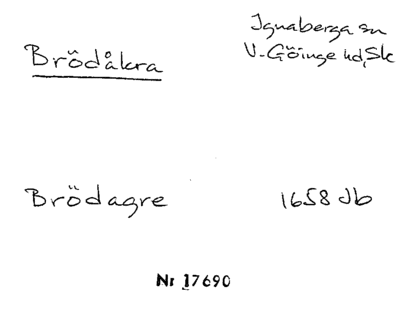 Ignaberga sn
Brödåkra V-Göinge hd, Sk
Brödagre 1658 Jb
Nr 17690